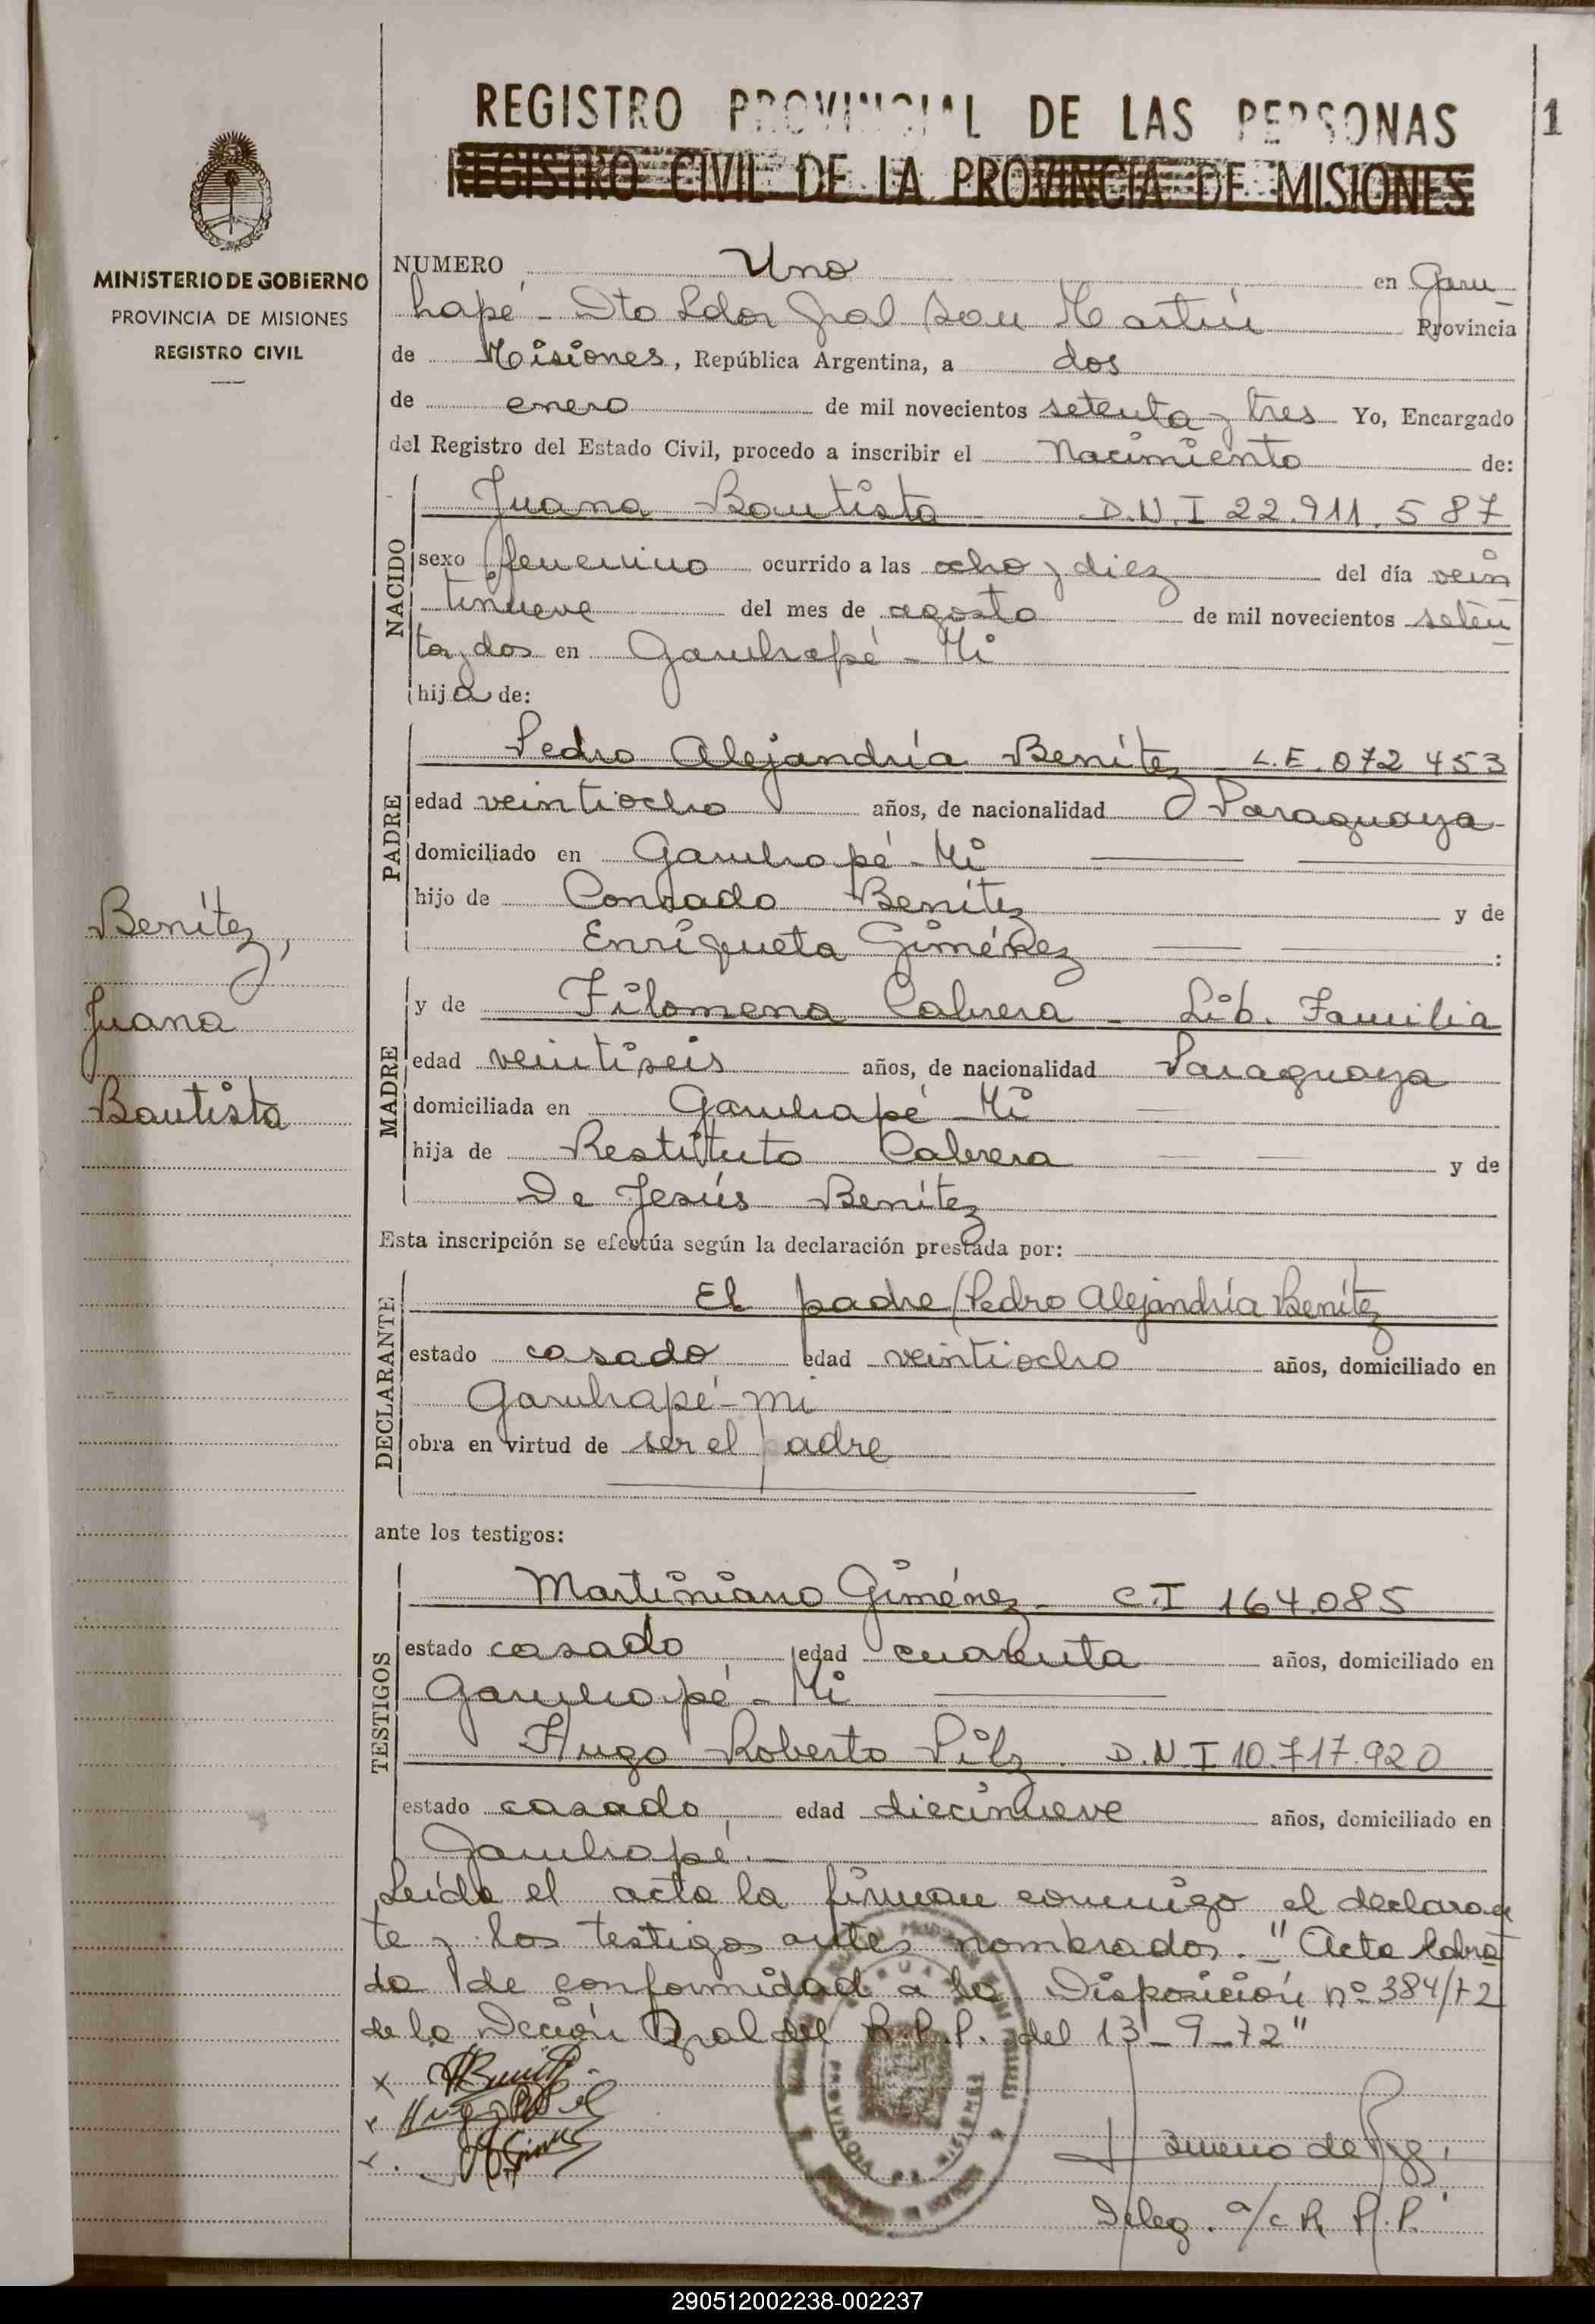 REGISTRO PROVINCIAL DE LAS PERSONAS
1
REGISTRO CIVIL DE LA PROVINCIA DE MISIONES
MINISTERIO DE GOBIERNO
PROVINCIA DE MISIONES
REGISTRO CIVIL
NUMERO Uno en Garu-
hapé - Dto Ldor Gral San Martín Provincia
de Misiones, República Argentina, a dos
de enero de mil novecientos setenta y tres Yo, Encargado
del Registro del Estado Civil, procedo a inscribir el Nacimiento de:
NACIDO
Juana Bautista D.N.I 22.911.587
sexo femenino ocurrido a las ocho y diez del día vein
tinueve del mes de agosto de mil novecientos seten
ta y dos en Garuhapé - Mi
hija de:
PADRE
Pedro Alejandría Benítez L.E. 072 453
edad veintiocho años, de nacionalidad Paraguaya
domiciliado en Garuhapé - Mi
hijo de Conrado Benítez y de
Enriqueta Giménez :
Benítez,
Juana
Bautista
MADRE
y de Filomena Cabrera - Lib. Familia
edad veintiseis años, de nacionalidad Paraguaya
domiciliada en Garuhapé - Mi
hija de Restituto Cabrera y de
De Jesús Benítez
Esta inscripción se efectúa según la declaración prestada por:
DECLARANTE
El padre/Pedro Alejandría Benítez
estado casado edad veintiocho años, domiciliado en
Garuhapé - mi
obra en virtud de ser el padre
ante los testigos:
TESTIGOS
Martiniano Giménez - C.I 164.085
estado casado edad cuarenta años, domiciliado en
Garuhapé - Mi
Hugo Roberto Pilz. D.N.I 10.717.920
estado casado edad diecinueve años, domiciliado en
Garuhapé.-
Leída el acta la firman conmigo el declaran
te y los testigos antes nombrados. "Acta labra
da de conformidad a la Disposición nº 384/72
de la Dción Gral del R.P.P. del 13-9-72"
Deleg. a/c R.P.P.
290512002238-002237